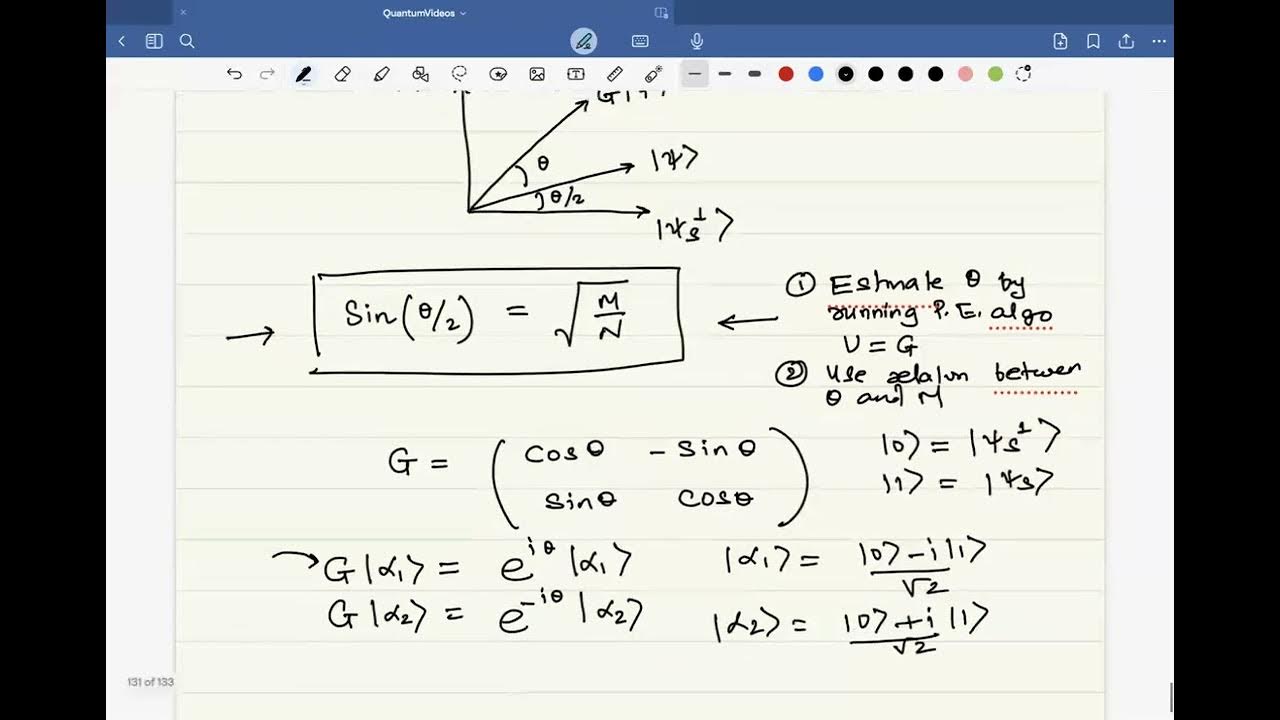 QuantumVideos
G|ψ⟩
θ
|ψ⟩
θ/2
|ψs⊥⟩
Sin(θ/2) = √(M/N)
① Estmate θ by
running P.E. algo
U = G
② Use relation between
θ and M
G = ( cosθ - sinθ
sinθ cosθ )
|0⟩ = |ψs⊥⟩
|1⟩ = |ψs⟩
G|α₁⟩ = e^{iθ} |α₁⟩ |α₁⟩ = (|0⟩ - i|1⟩)/√2
G|α₂⟩ = e^{-iθ} |α₂⟩ |α₂⟩ = (|0⟩ + i|1⟩)/√2
131 of 133